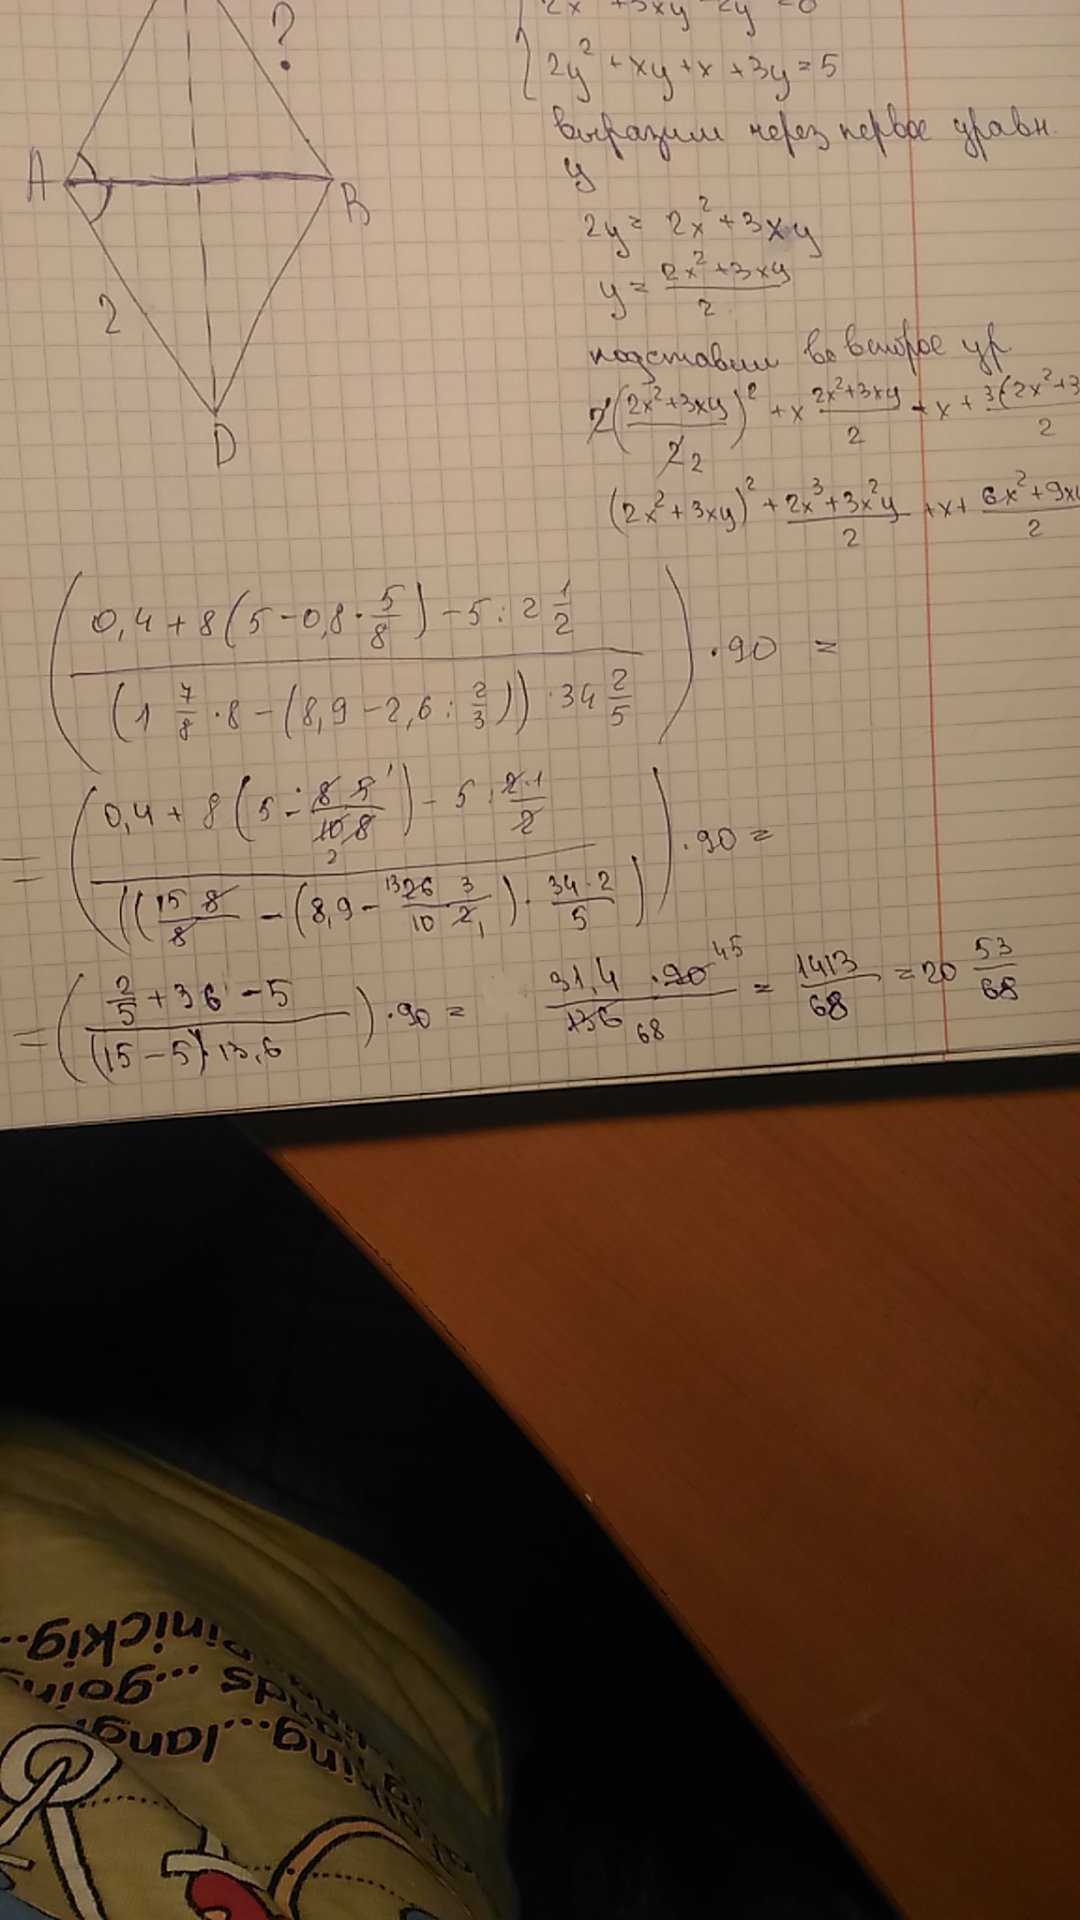 ?
A
B
2
D
2x² + 3xy - 2y = 0
2y² + xy + x + 3y = 5
выразим через первое уравн.
y
2y = 2x² + 3xy
y = (2x² + 3xy)/2
подставим во второе ур
2((2x² + 3xy)/2 2)² + x (2x² + 3xy)/2 + x + 3(2x² + 3
(2x² + 3xy)² + (2x³ + 3x²y)/2 + x + (6x² + 9xy)/2
((0,4 + 8(5 - 0,8 · 5/8) - 5 : 2 1/2) / ((1 7/8 · 8 - (8,9 - 2,6 : 2/3)) · 34 2/5)) · 90 =
= ((0,4 + 8(5 - (8 · 5 1)/(10 8 2)) - 5 : (2·1)/2) / (((15 8)/8 - (8,9 - (13 26 · 3)/(10 · 2 1)) · (34·2)/5)) · 90 =
= ((2/5 + 36 - 5) / ((15 - 5) · 13,6)) · 90 = (31,4 · 90 45)/(136 68) = 1413/68 = 20 53/68